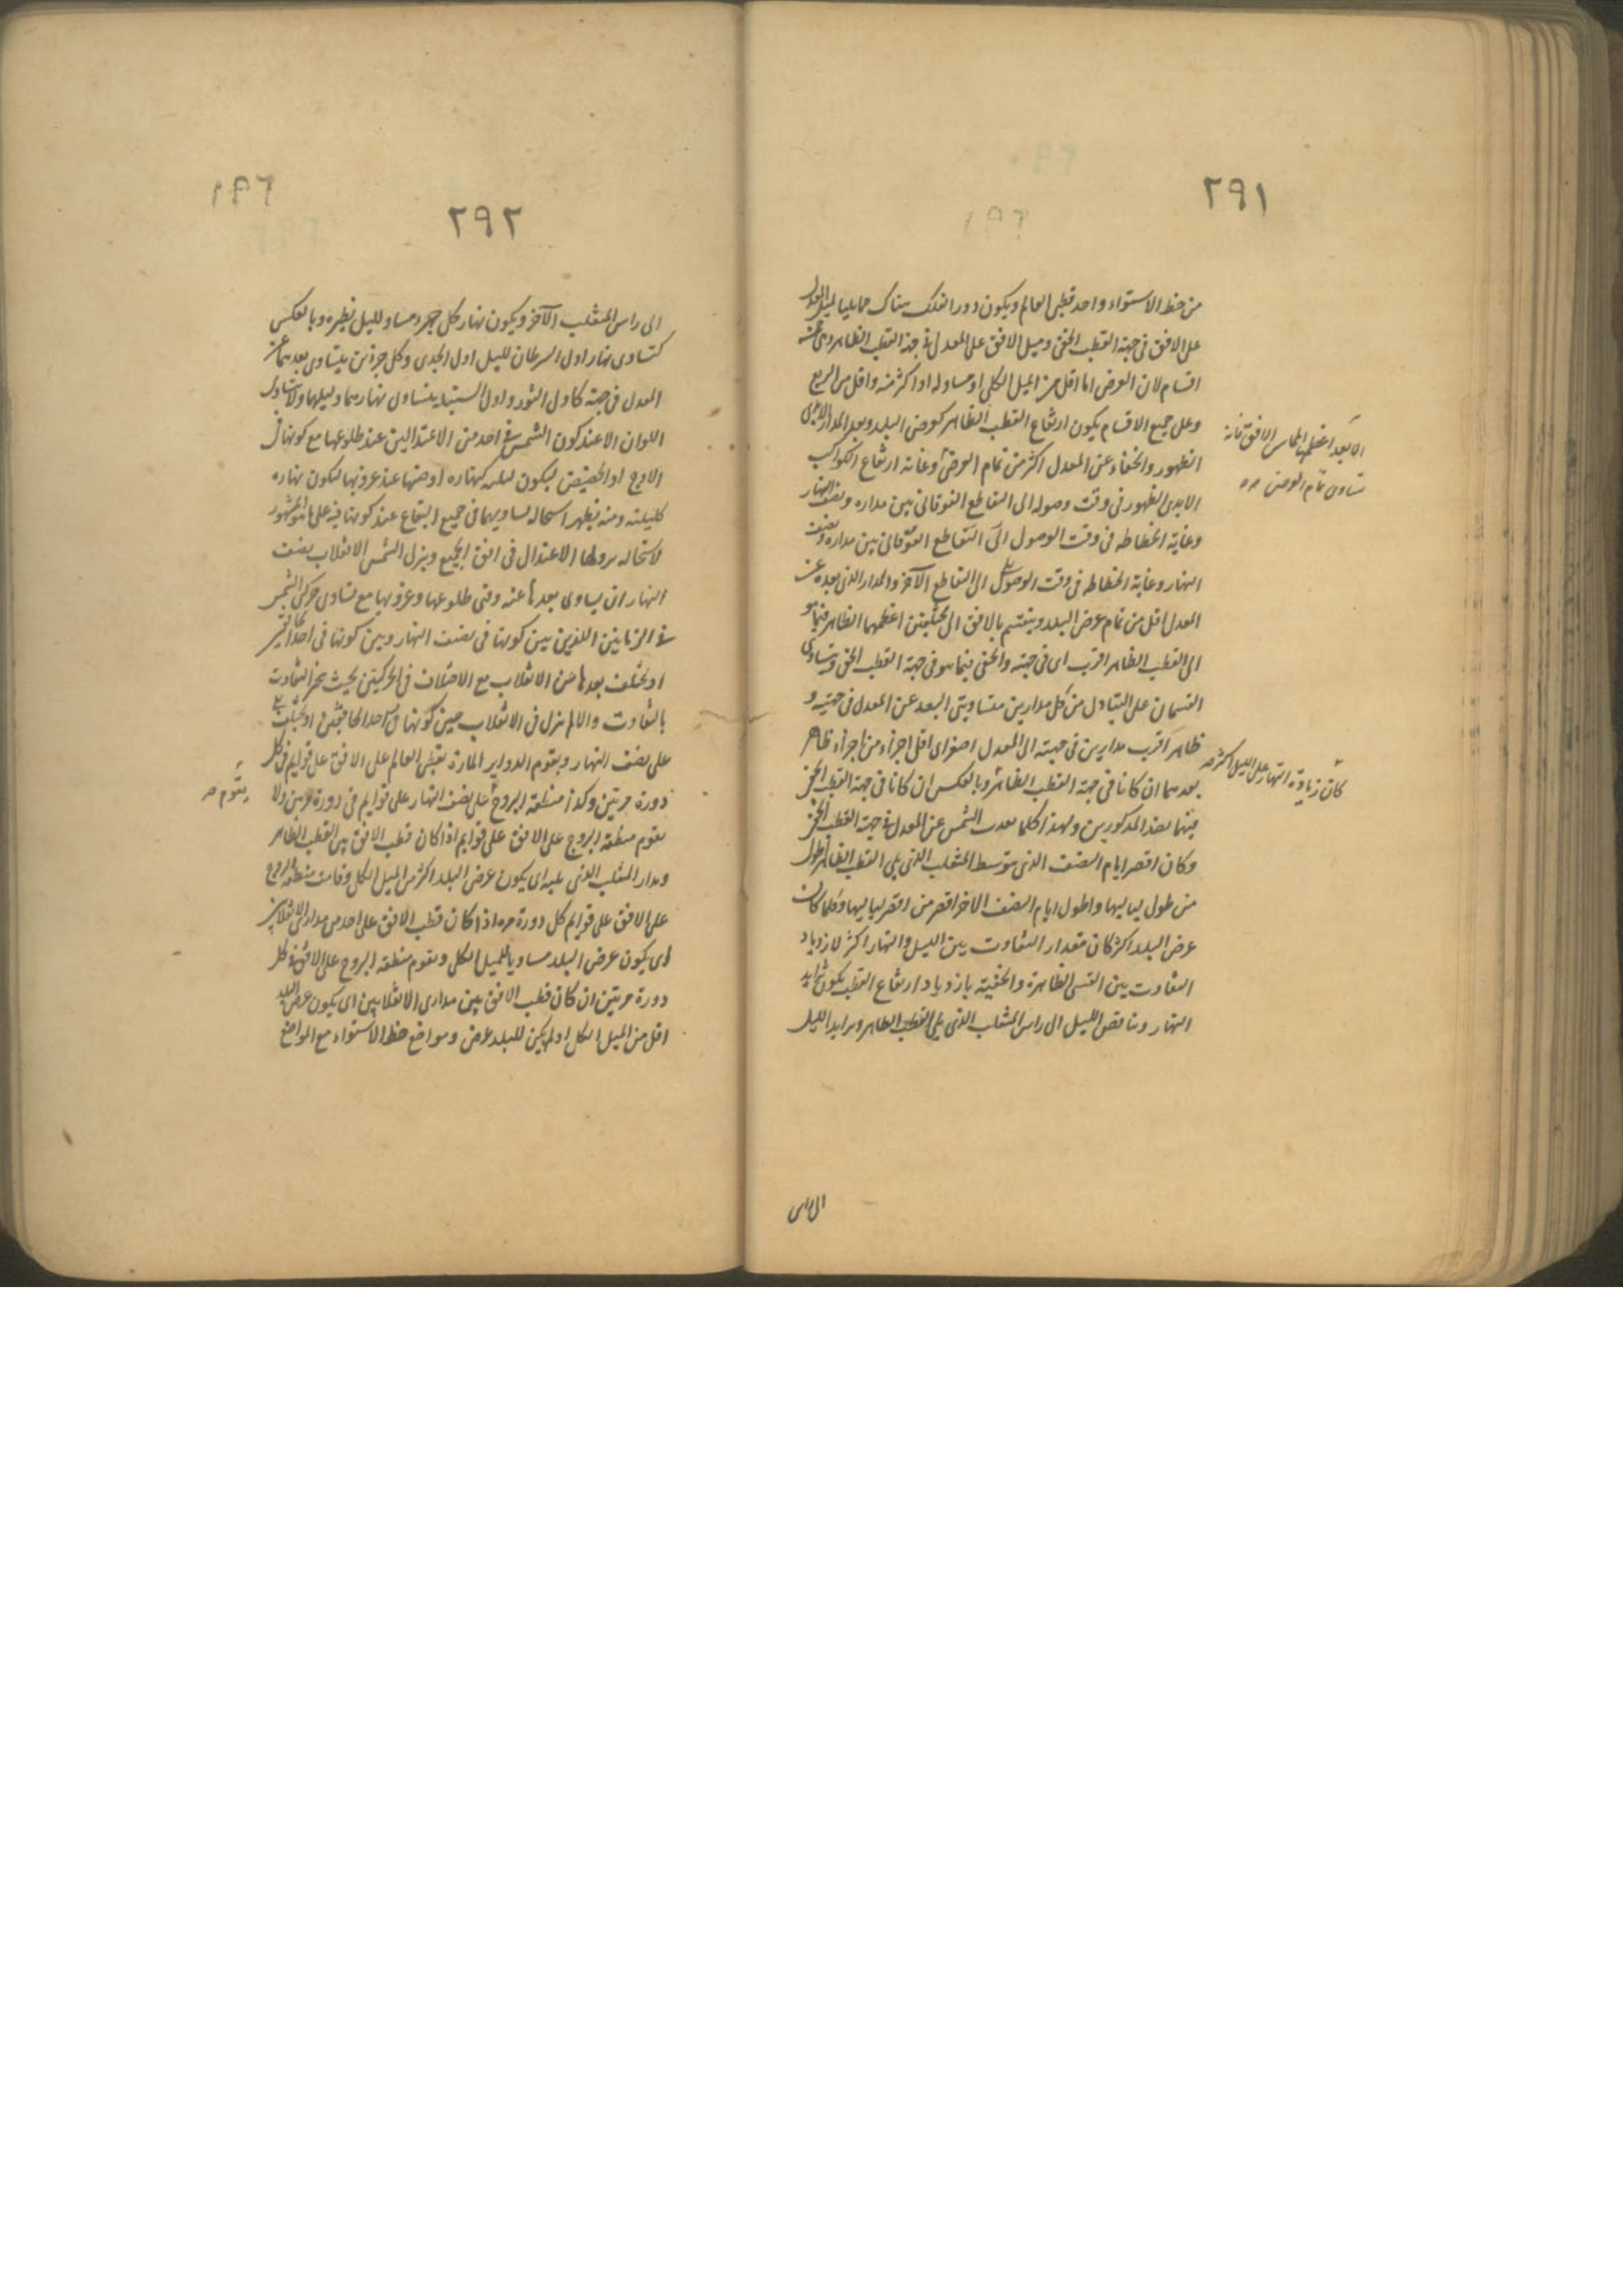 ٢٩١
من خط الاستواء واحد قطبى العالم ويكون دور الفلك هناك حمايليا لميل المعدل
على الافق فى جهة القطب الخفى وميل الافق على المعدل فى جهة القطب الظاهر وهى خمسة
اقسام لان العرض اما اقل من الميل الكلى او مساو له او اكثر منه واقل من الربع
وعلى جميع الاقسام يكون ارتفاع القطب الظاهر كعرض البلد وبعد المدار الابدى
الظهور والخفاء عن المعدل اكثر من تمام العرض وغاية ارتفاع الكواكب
الا بعد اعظمها المماس الافق فانه
تساوى تمام العرض
الابدى الظهور فى وقت وصوله الى التقاطع الفوقانى بين مداره ونصف النهار
وغاية انحطاطه فى وقت الوصول الى التقاطع الفوقانى بين مداره ونصف
النهار وغاية انحطاطه فى وقت الوصول الى التقاطع الآخر والمدار الذى بعده عن
المعدل اقل من تمام عرض البلد وينقسم بالافق الى مختلفين اعظمهما الظاهر فيما هو
الى القطب الظاهر اقرب اى فى جهته والخفى فيما هو فى جهة القطب الخفى ويتساوى
القسمان على التبادل من كل مدارين متساويتى البعد عن المعدل فى جهتيه و
ظاهر اقرب مدارين فى جهته الى المعدل اصغر اى اقل اجزاء من اجزاء ظاهر
بعدهما ان كانا فى جهة القطب الظاهر وبالعكس ان كانا فى جهة القطب الخفى
فيهما بضد المذكورين ولهذا كلما بعدت الشمس عن المعدل فى جهة القطب الخفى
كان زيادة النهار على الليل اكثر
وكان اقصر ايام النصف الذى يتوسط المنقلب الذى يلى القطب الظاهر اطول
من طول لياليها واطول ايام النصف الاخر اقصر من اقصر لياليها وكلما كان
عرض البلد اكثر كان مقدار التفاوت بين الليل والنهار اكثر لازدياد
التفاوت بين القسى الظاهرة والخفية بازدياد ارتفاع القطب يكون تزايد
النهار وتناقص الليل الى راس المنقلب الذى يلى القطب الظاهر وتزايد الليل
الى راس
٢٩٢
الى راس المنقلب الآخر ويكون نهار كل جزء مساو لليل نظيره وبالعكس
كتساوى نهار اول السرطان لليل اول الجدى وكل جزئين يتساوى بعدهما عن
المعدل فى جهة كاول الثور واول السنبلة يتساوى نهارهما وليلهما ولا يتساوى
الملوان الا عند كون الشمس فى احد من الاعتدالين عند طلوعها مع كونها فى
الاوج او الحضيض ليكون ليله كنهاره او ضها عند غروبها ليكون نهاره
كليلته ومنه يظهر استحالة تساويهما فى جميع البقاع عند كونها فيه على ما هو المشهور
لاستحالة نزولها الاعتدال فى افق الجميع وينزل الشمس الانقلاب بنصف
النهار ان يساوى بعدها عنه وقتى طلوعها وغروبها مع تساوى حركتى الشمس
فى الزمانين اللذين بين كونها فى نصف النهار وبين كونها فى احد الخافقين
او يختلف بعدها عن الانقلاب مع الاختلاف فى الحركتين بحيث
بالتفاوت والا لم تنزل فى الانقلاب حين كونها فى احد الخافقين او يختلف
على نصف النهار ويقوم الدواير المارة بقطبى العالم على الافق على قوايم فى كل
دورة مرتين وكذا منطقة البروج على نصف النهار على قوايم فى دورة مرتين ولا
يقوم
يقوم منطقة البروج على الافق على قوايم اذا كان قطب الافق بين القطب الظاهر
ومدار المنقلب الذى يليه اى يكون عرض البلد اكثر من الميل الكلى وقامت منطقة البروج
على الافق على قوايم كل دورة مرة اذا كان قطب الافق على احد من مدارى الانقلابين
اى يكون عرض البلد مساويا للميل الكلى ويقوم منطقة البروج على الافق فى كل
دورة مرتين ان كان قطب الافق بين مدارى الانقلابين اى يكون عرض البلد
اقل من الميل الكلى او لم يكن للبلد عرض ومواضع خط الاستواء مع المواضع